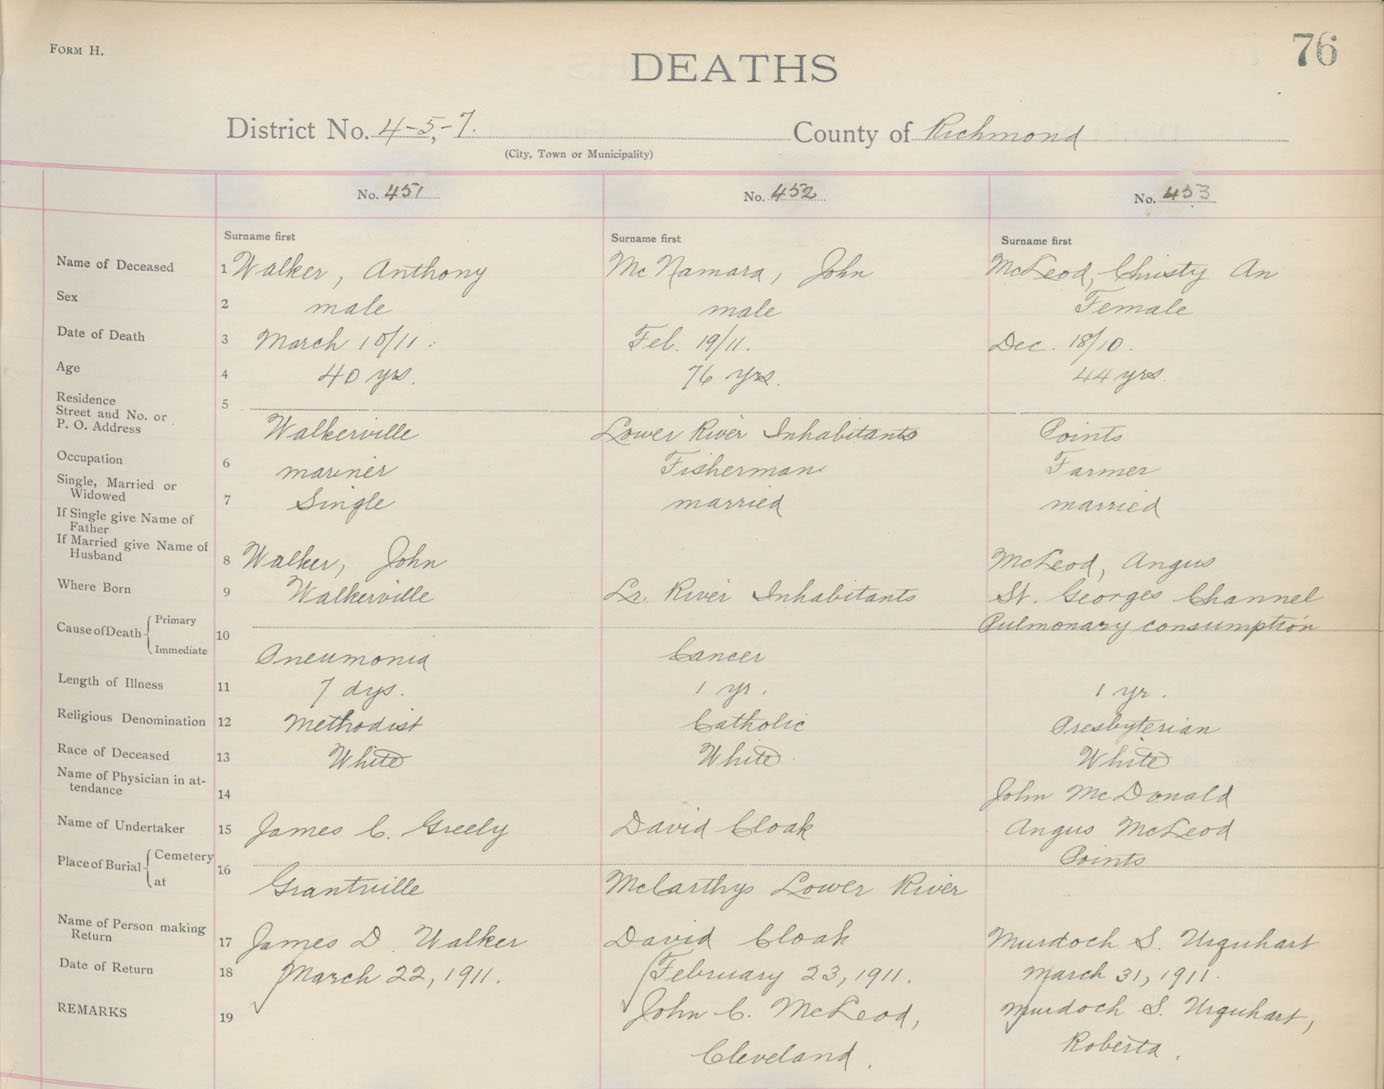 FORM H.
76
DEATHS
District No. 4-5,-7. County of Richmond
(City, Town or Municipality)
No. 451 No. 452 No. 453
Surname first Surname first Surname first
Name of Deceased 1 Walker, Anthony McNamara, John McLeod, Christy An
Sex 2 male male Female
Date of Death 3 March 10/11. Feb. 19/11. Dec. 18/10.
Age 4 40 yrs. 76 yrs. 44 yrs.
Residence 5
Street and No. or
P. O. Address Walkerville Lower River Inhabitants Points
Occupation 6 mariner Fisherman Farmer
Single, Married or
Widowed 7 Single married married
If Single give Name of
Father
If Married give Name of
Husband 8 Walker, John McLeod, Angus
Where Born 9 Walkerville Lr. River Inhabitants St. Georges Channel
Cause of Death Primary 10 Pulmonary consumption
Immediate Pneumonia Cancer
Length of Illness 11 7 dys. 1 yr. 1 yr.
Religious Denomination 12 Methodist Catholic Presbyterian
Race of Deceased 13 White White White
Name of Physician in at-
tendance 14 John McDonald
Name of Undertaker 15 James C. Greely David Cloak Angus McLeod
Place of Burial Cemetery 16 Points
at Grantville McCarthys Lower River
Name of Person making
Return 17 James D. Walker David Cloak Murdoch S. Urquhart
Date of Return 18 March 22, 1911. February 23, 1911. March 31, 1911.
REMARKS 19 John C. McLeod, Murdoch S. Urquhart,
Cleveland. Roberta.